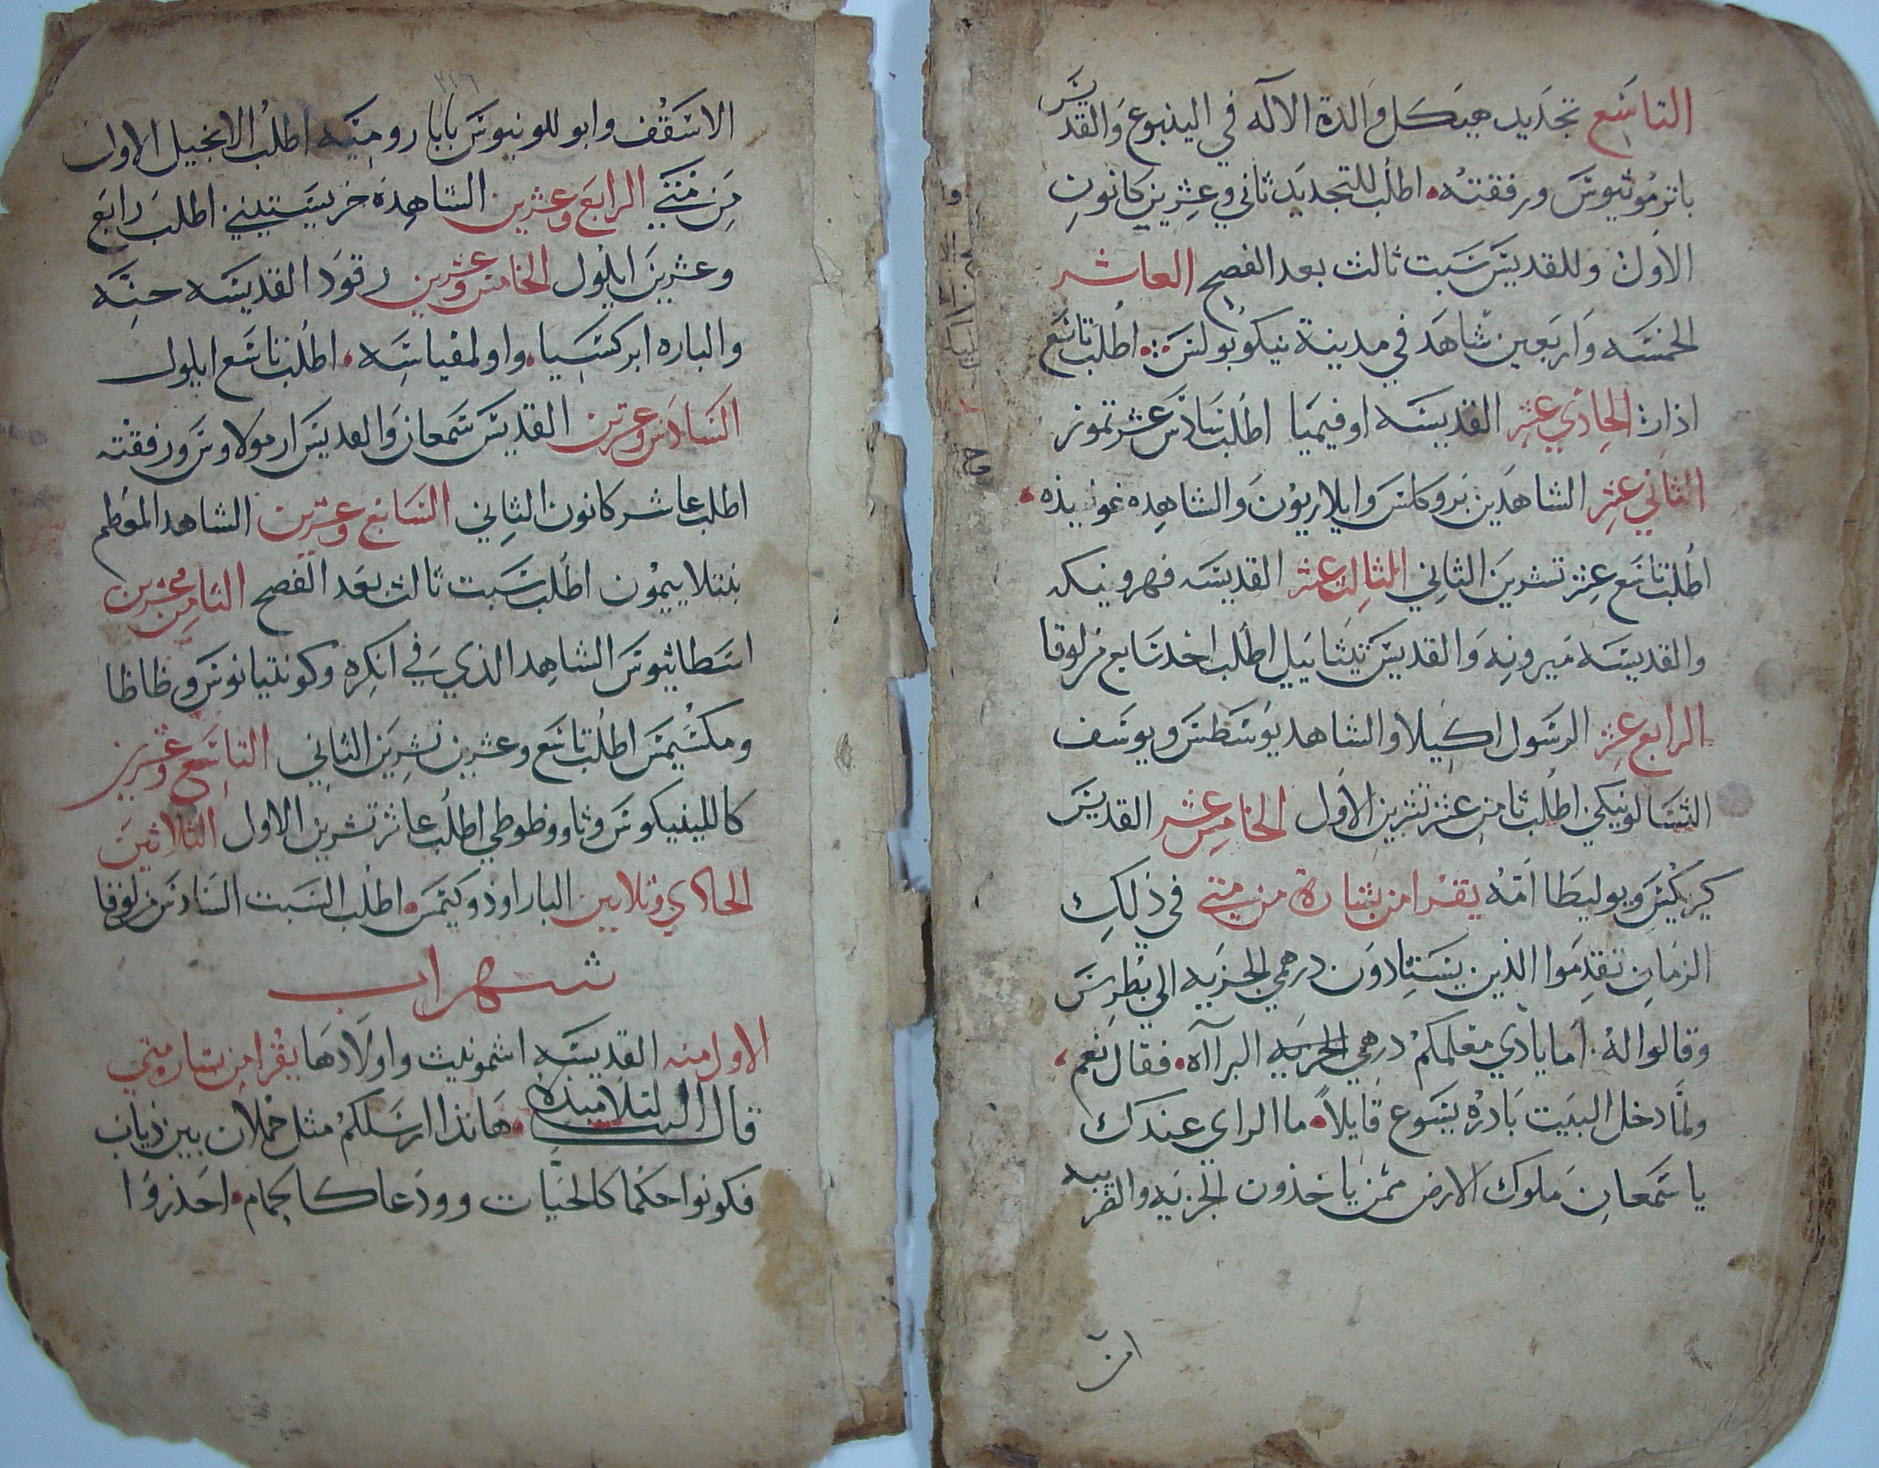 التاسع تجديد هيكل والدة الاله في الينبوع والقديس
باترموثيوس ورفقته اطلب للتجديد ثاني وعشرين كانون
الاول وللقديس سبت ثالث بعد الفصح العاشر
الخمسه واربعين شاهد في مدينة نيكوبولس اطلب تاسع
اذار الحادي عشر القديسه اوفيميا اطلب سادس عشر تموز
الثاني عشر الشاهدين بروكلس وايلاريون والشاهده
اطلب تاسع عشر تشرين الثاني الثالث عشر القديسه فهرونيكه
والقديسه ميرونه والقديس اطلب احد سابع من لوقا
الرابع عشر الرسول اكيلا والشاهد يوسطس ويوسف
التسالونيكي اطلب ثامن عشر تشرين الاول الخامس عشر القديس
كيريكس ويوليطا امه يقرا من بشارة من متى في ذلك
الزمان تقدموا الذين يستادون درهمي الجزيه الي بطرس
وقالوا له اما يادي معلمكم درهمي الجزيه فقال نعم
ولما دخل البيت بادره يسوع قايلاً ما الراي عندك
يا سمعان ملوك الارض ممن ياخذون الجزيه والضريبه
امن
٢١٦
الاسقف وابوللونيوس بابا روميه اطلب الانجيل الاول
من متى الرابع وعشرين الشاهدة خريستيني اطلب رابع
وعشرين ايلول الخامس وعشرين رقود القديسه حنه
والباره ابركسيا واولمفياسه اطلب تاسع ايلول
السادس وعشرين القديس سمعان والقديس ارمولاوس ورفقته
اطلب عاشر كانون الثاني السابع وعشرين الشاهد المعظم
بنتلاييمون اطلب سبت ثالث بعد الفصح الثامن وعشرين
اسطاثيوس الشاهد الذي في انكره وكونتيانوس وظاظا
ومكسيمس اطلب تاسع وعشرين تشرين الثاني التاسع وعشرين
كاللينيكوس وثاووظوطي اطلب عاشر تشرين الاول الثلاثين
الحادي وثلاثين البار اوذوكيمس اطلب السبت السادس من لوقا
شهر اب
الاول منه القديسه اشمونيث واولادها يقرا من بشارة متى
قال الرب لتلاميذه هانذا ارسلكم مثل حملان بين ذياب
فكونوا حكما كالحيات وودعا كالحمام احذروا